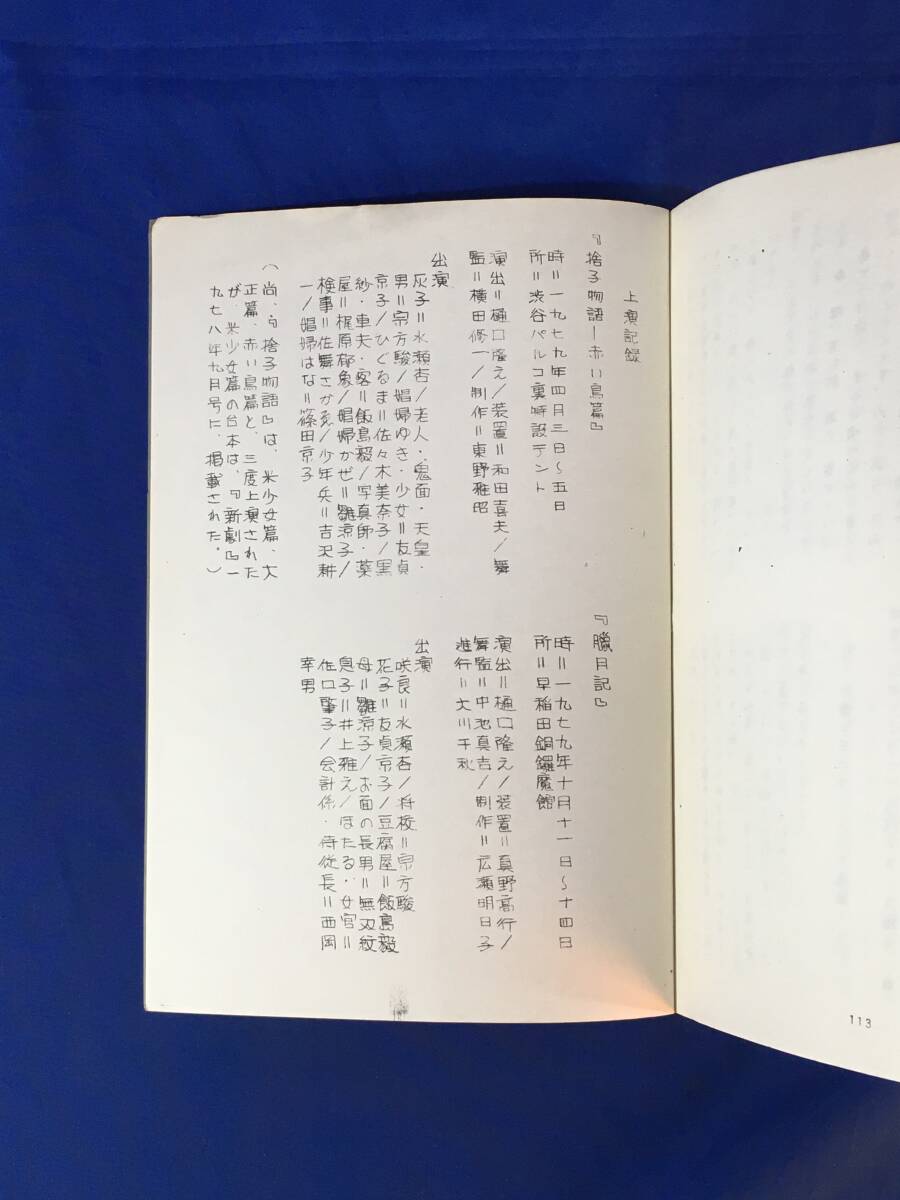 上演記録
『捨子物語―赤い鳥篇』
時=一九七九年四月三日〜五日
所=渋谷パルコ裏特設テント
演出=樋口隆之/装置=和田喜夫/舞
監=横田修一/制作=東野雅昭
出演
灰子=水瀬杏/老人・鬼面・天皇・
男=宗方駿/娼婦ゆき・少女=友貞
京子/ひぐるま=佐々木美奈子/黒
紗・車夫・客=飯島毅/写真師・薬
屋=梶原郁象/娼婦かぜ=雛涼子/
検事=佐舞さか恵/少年兵=吉沢耕
一/娼婦はな=篠田京子
(尚、『捨子物語』は、米少女篇、大
正篇、赤い鳥篇と、三度上演された
が、米少女篇の台本は、『新劇』一
九七八年九月号に、掲載された。)
『朧月記』
時=一九七九年十月十一日〜十四日
所=早稲田銅鑼魔館
演出=樋口隆之/装置=真野高行/
舞監=中池真吉/制作=広瀬明日子
進行=大川千秋
出演
咲良=水瀬杏/将校=宗方駿
花子=友貞京子/豆腐屋=飯島毅
母=雛涼子/お面の長男=無双紋
息子=井上雅之/ほたる・女官=
佐口肇子/会計係・侍従長=西岡
幸男
113